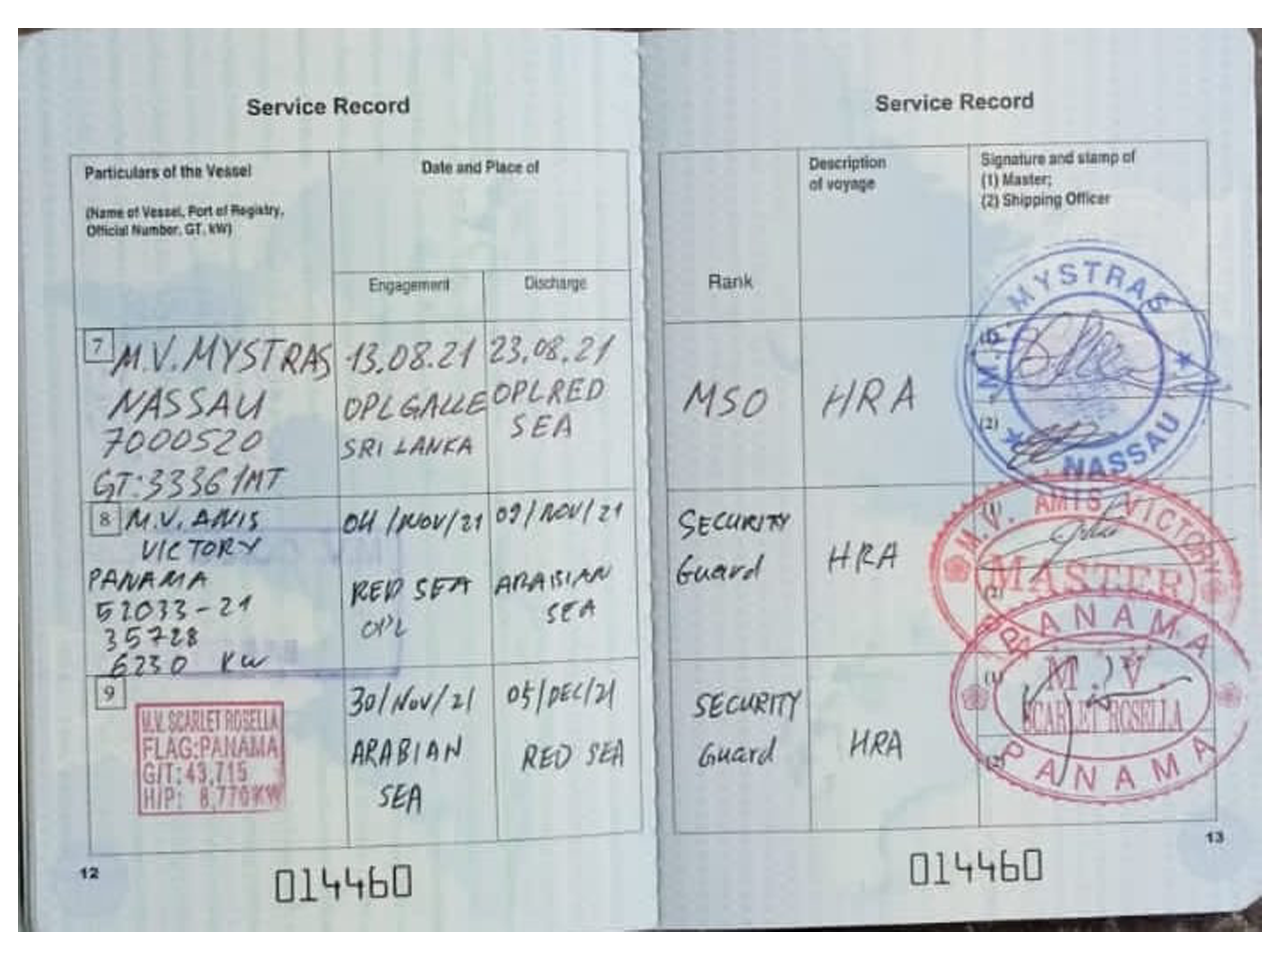 Service Record
Particulars of the Vessel
(Name of Vessel, Port of Registry,
Official Number, GT, kW)
Date and Place of
Engagement
Discharge
7
M.V. MYSTRAS
NASSAU
7000520
GT:33361MT
13.08.21
OPL GALLE
SRI LANKA
23.08.21
OPL RED
SEA
8
M.V. ANIS
VICTORY
PANAMA
52033-21
35728
6230 KW
04/NOV/21
RED SEA
OPL
09/NOV/21
ARABIAN
SEA
9
M.V. SCARLET ROSELLA
FLAG:PANAMA
G/T: 43,715
H/P: 8,770KW
30/NOV/21
ARABIAN
SEA
05/DEC/21
RED SEA
12
014460
Service Record
Rank
Description
of voyage
Signature and stamp of
(1) Master;
(2) Shipping Officer
MSO
HRA
M.V. MYSTRAS
(2)
NASSAU
SECURITY
Guard
HRA
(1)
M.V. AMIS VICTORY
MASTER
(2)
PANAMA
SECURITY
Guard
HRA
(1)
PANAMA
M.V
SCARLET ROSELLA
(2)
PANAMA
13
014460